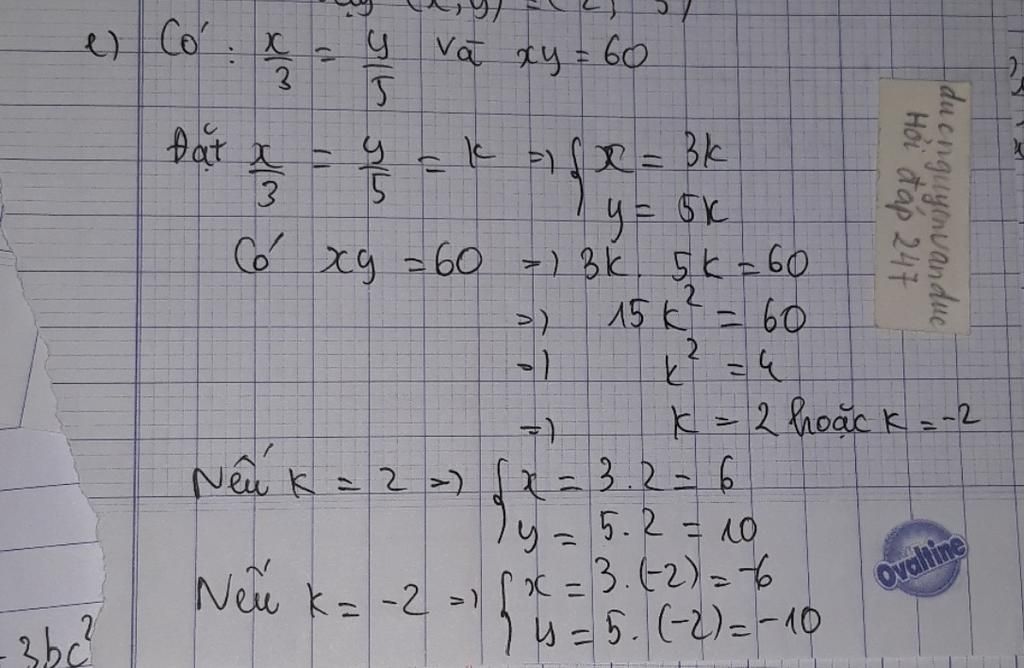 e) Có : x/3 = y/5 và xy = 60
Đặt x/3 = y/5 = k => { x = 3k
y = 5k
Có xy = 60 => 3k. 5k = 60
=> 15k² = 60
=> k² = 4
=> k = 2 hoặc k = -2
Nếu k = 2 => { x = 3.2 = 6
y = 5.2 = 10
Nếu k = -2 => { x = 3.(-2) = -6
y = 5.(-2) = -10
3bc²
ducnguyenvanduc
Hỏi đáp 247
Ovaltine